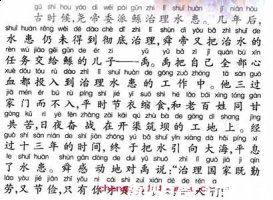 gǔ shí hou yáo dì wěi pài gǔn zhì lǐ shuǐ huàn jǐ nián hòu
古时候，尧帝委派鲧治理水患。几年后，
shuǐ huàn réng wèi dé dào chè dǐ zhì lǐ shùn dì yòu bǎ zhì shuǐ de
水患仍未得到彻底治理，舜帝又把治水的
rèn wù jiāo gěi gǔn de ér zi yǔ yǔ bǎ zì jǐ quán bù xīn
任务交给鲧的儿子——禹。禹把自己全部心
xuè dōu tóu rù dào zhì lǐ shuǐ huàn de gōng zuò zhōng tā sān guò
血都投入到治理水患的工作中。他三过
jiā mén ér bú rù píng shí jié yī suō shí hé lǎo bǎi xìng tóng gān
家门而不入，平时节衣缩食，和老百姓同甘
gòng kǔ rì yè fèn zhàn zài kāi qú zhù bà de gōng dì shang jīng
共苦，日夜奋战在开渠筑坝的工地上。经
guò shí sān nián de shí jiān zhōng yú bǎ shuǐ yǐn xiàng dà hǎi píng xī
过十三年的时间，终于把水引向大海，平息
le shuǐ huàn shùn gǎn dòng de duì yǔ shuō zhì lǐ guó jiā jì qín
了水患。舜感动地对禹说：“治理国家既勤
láo yòu jié jiǎn zhǐ yǒu nǐ
劳，又节俭，只有你